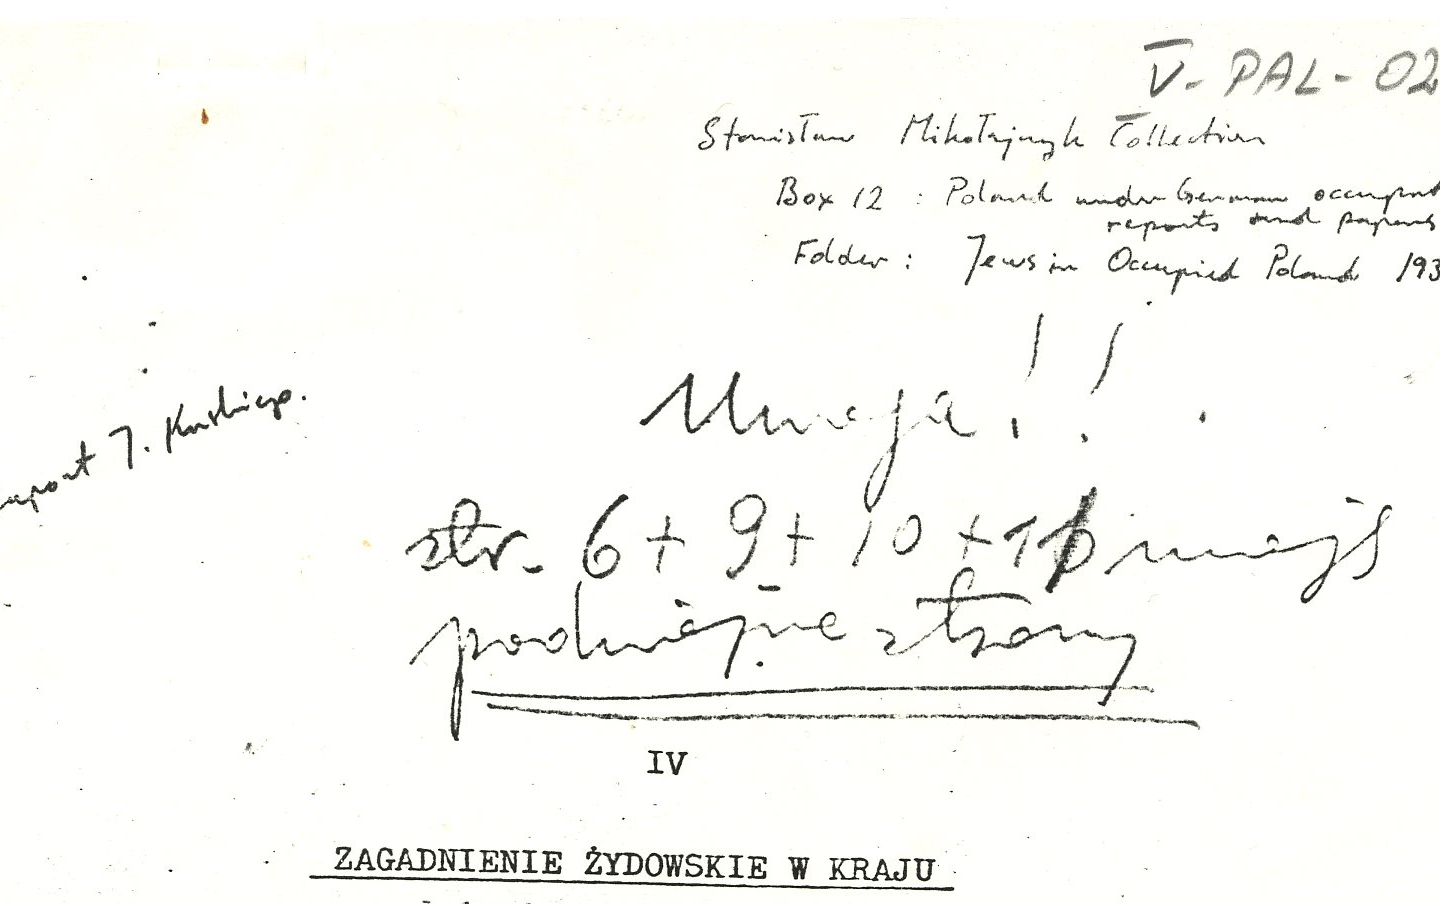 V-PAL-02
Stanisław Mikołajczyk Collection
Box 12 : Poland under German occupat
reports and papers
Folder : Jews in Occupied Poland 193
Uwaga!!
raport J. Karskiego.
str. 6 + 9 + 10 + 11 mają
podwójne strony
IV
ZAGADNIENIE ŻYDOWSKIE W KRAJU